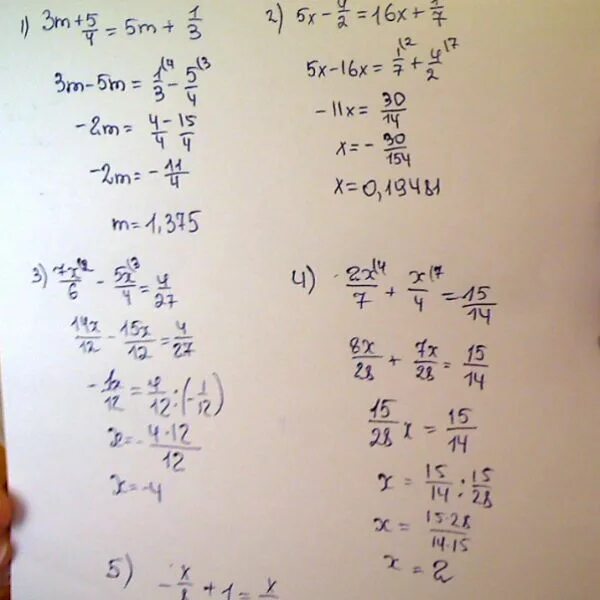 1) 3m + 5/4 = 5m + 1/3
3m - 5m = 1/3 (4 - 5/4 (3
-2m = 4/4 - 15/4
-2m = - 11/4
m = 1,375
2) 5x - 4/2 = 16x + 1/7
5x - 16x = 1/7 (2 + 4/2 (7
-11x = 30/14
x = - 30/154
x = 0,19481
3) 7x/6 (2 - 5x/4 (3 = 4/27
14x/12 - 15x/12 = 4/27
- 1x/12 = 4/12 : (- 1/12)
x = - 4·12/12
x = -4
4) 2x/7 (4 + x/4 (7 = 15/14
8x/28 + 7x/28 = 15/14
15/28 x = 15/14
x = 15/14 : 15/28
x = 15·28/14·15
x = 2
5) - x/8 + 1 = x